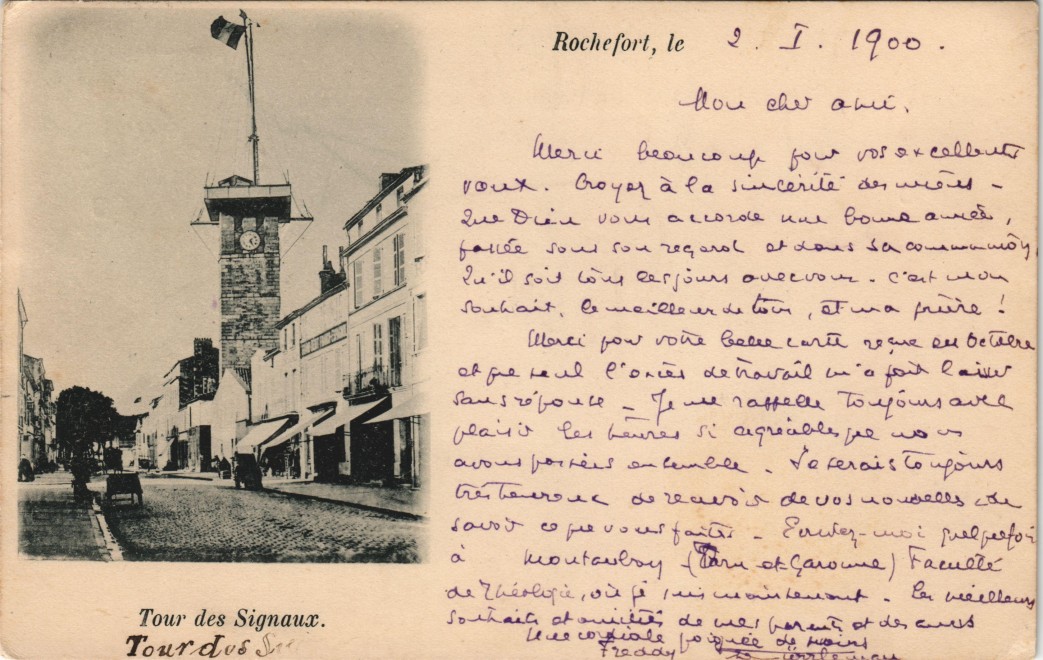 Rochefort, le 2. I. 1900.
Mon cher ami.
Merci beaucoup pour vos excellents
vœux. Croyez à la sincérité des miens -
Que Dieu vous accorde une bonne année,
passée sous son regard et dans sa communion,
Qu'il soit tous les jours avec vous - c'est mon
souhait, le meilleur de tous, et ma prière !
Merci pour votre belle carte reçue en Octobre
et que seul l'excès de travail m'a fait laisser
sans réponse - Je me rappelle toujours avec
plaisir les heures si agréables que nous
avons passées ensemble. Je serais toujours
très heureux de recevoir de vos nouvelles, de
savoir ce que vous faites - Ecrivez-moi quelquefois
à Montauban (Tarn et Garonne) Faculté
de Théologie, où je suis maintenant. Les meilleurs
souhaits et amitiés de mes parents et des amis
Une cordiale poignée de mains
Freddy
Tour des Signaux.
Tour des